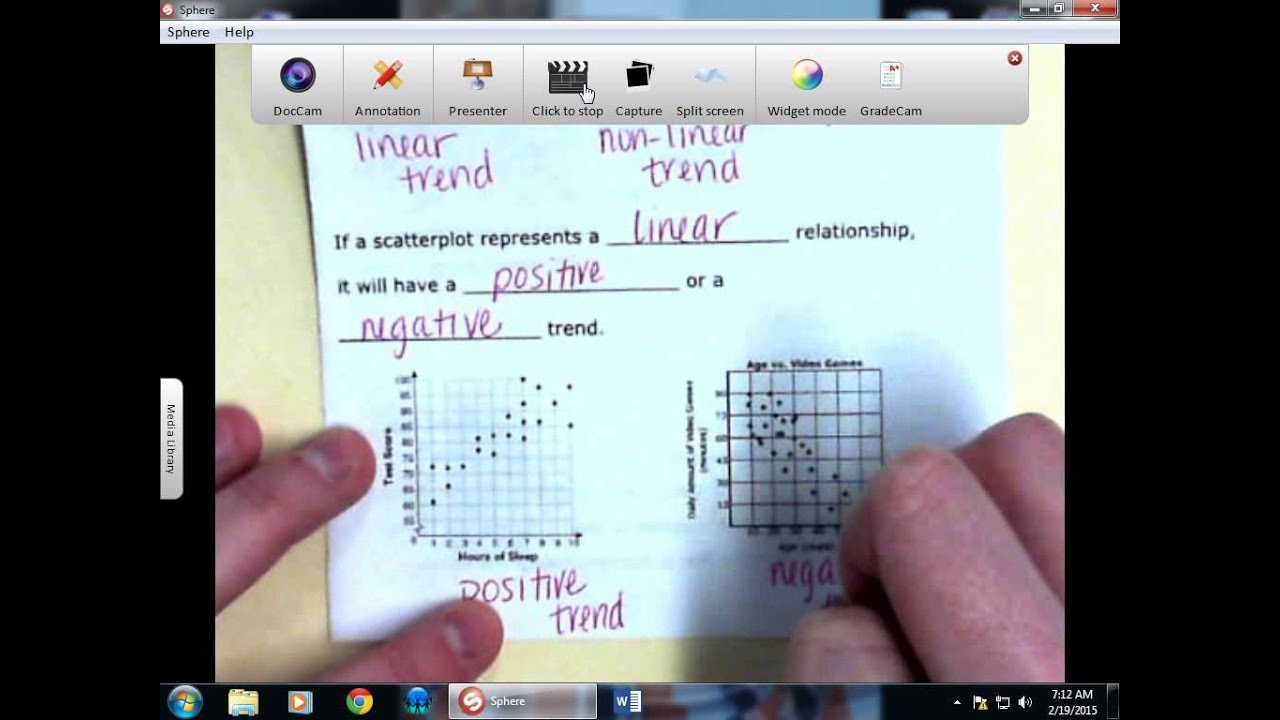 Sphere
Sphere Help
DocCam Annotation Presenter Click to stop Capture Split screen Widget mode GradeCam
linear
trend
non-linear
trend
If a scatterplot represents a linear relationship,
it will have a positive or a
negative trend.
Test Score
Hours of Sleep
positive
trend
Age vs. Video Games
Daily Amount of Video Games
(minutes)
nega
Media Library
Sphere
7:12 AM
2/19/2015